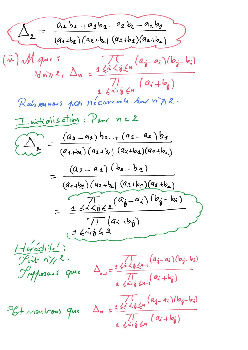 Δ₂ = (a₂b₂ + a₂b₁ - a₁b₂ - a₁b₁) / ((a₁+b₁)(a₂+b₂)(a₂+b₁)(a₁+b₂))
que :
∀n≥2, Δₙ = ∏_{1≤i<j≤n} (aⱼ-aᵢ)(bⱼ-bᵢ) / ∏_{1≤i,j≤n} (aᵢ+bⱼ)
Raisonnons par récurrence sur n≥2.
Initialisation : Pour n = 2
Δ₂ =
= (a₂-a₁)(b₂-b₁) / ((a₁+b₁)(a₂+b₂)(a₂+b₁)(a₁+b₂))
= ∏_{1≤i<j≤2} (aⱼ-aᵢ)(bⱼ-bᵢ) / ∏_{1≤i,j≤2} (aᵢ+bⱼ)
Hérédité :
Soit n≥2.
Supposons que Δₙ₋₁ = ∏_{1≤i<j≤n-1} (aⱼ-aᵢ)(bⱼ-bᵢ) / ∏_{1≤i,j≤n-1} (aᵢ+bⱼ)
Et montrons que Δₙ = ∏_{1≤i<j≤n} (aⱼ-aᵢ)(bⱼ-bᵢ) / ∏_{1≤i,j≤n} (aᵢ+bⱼ)